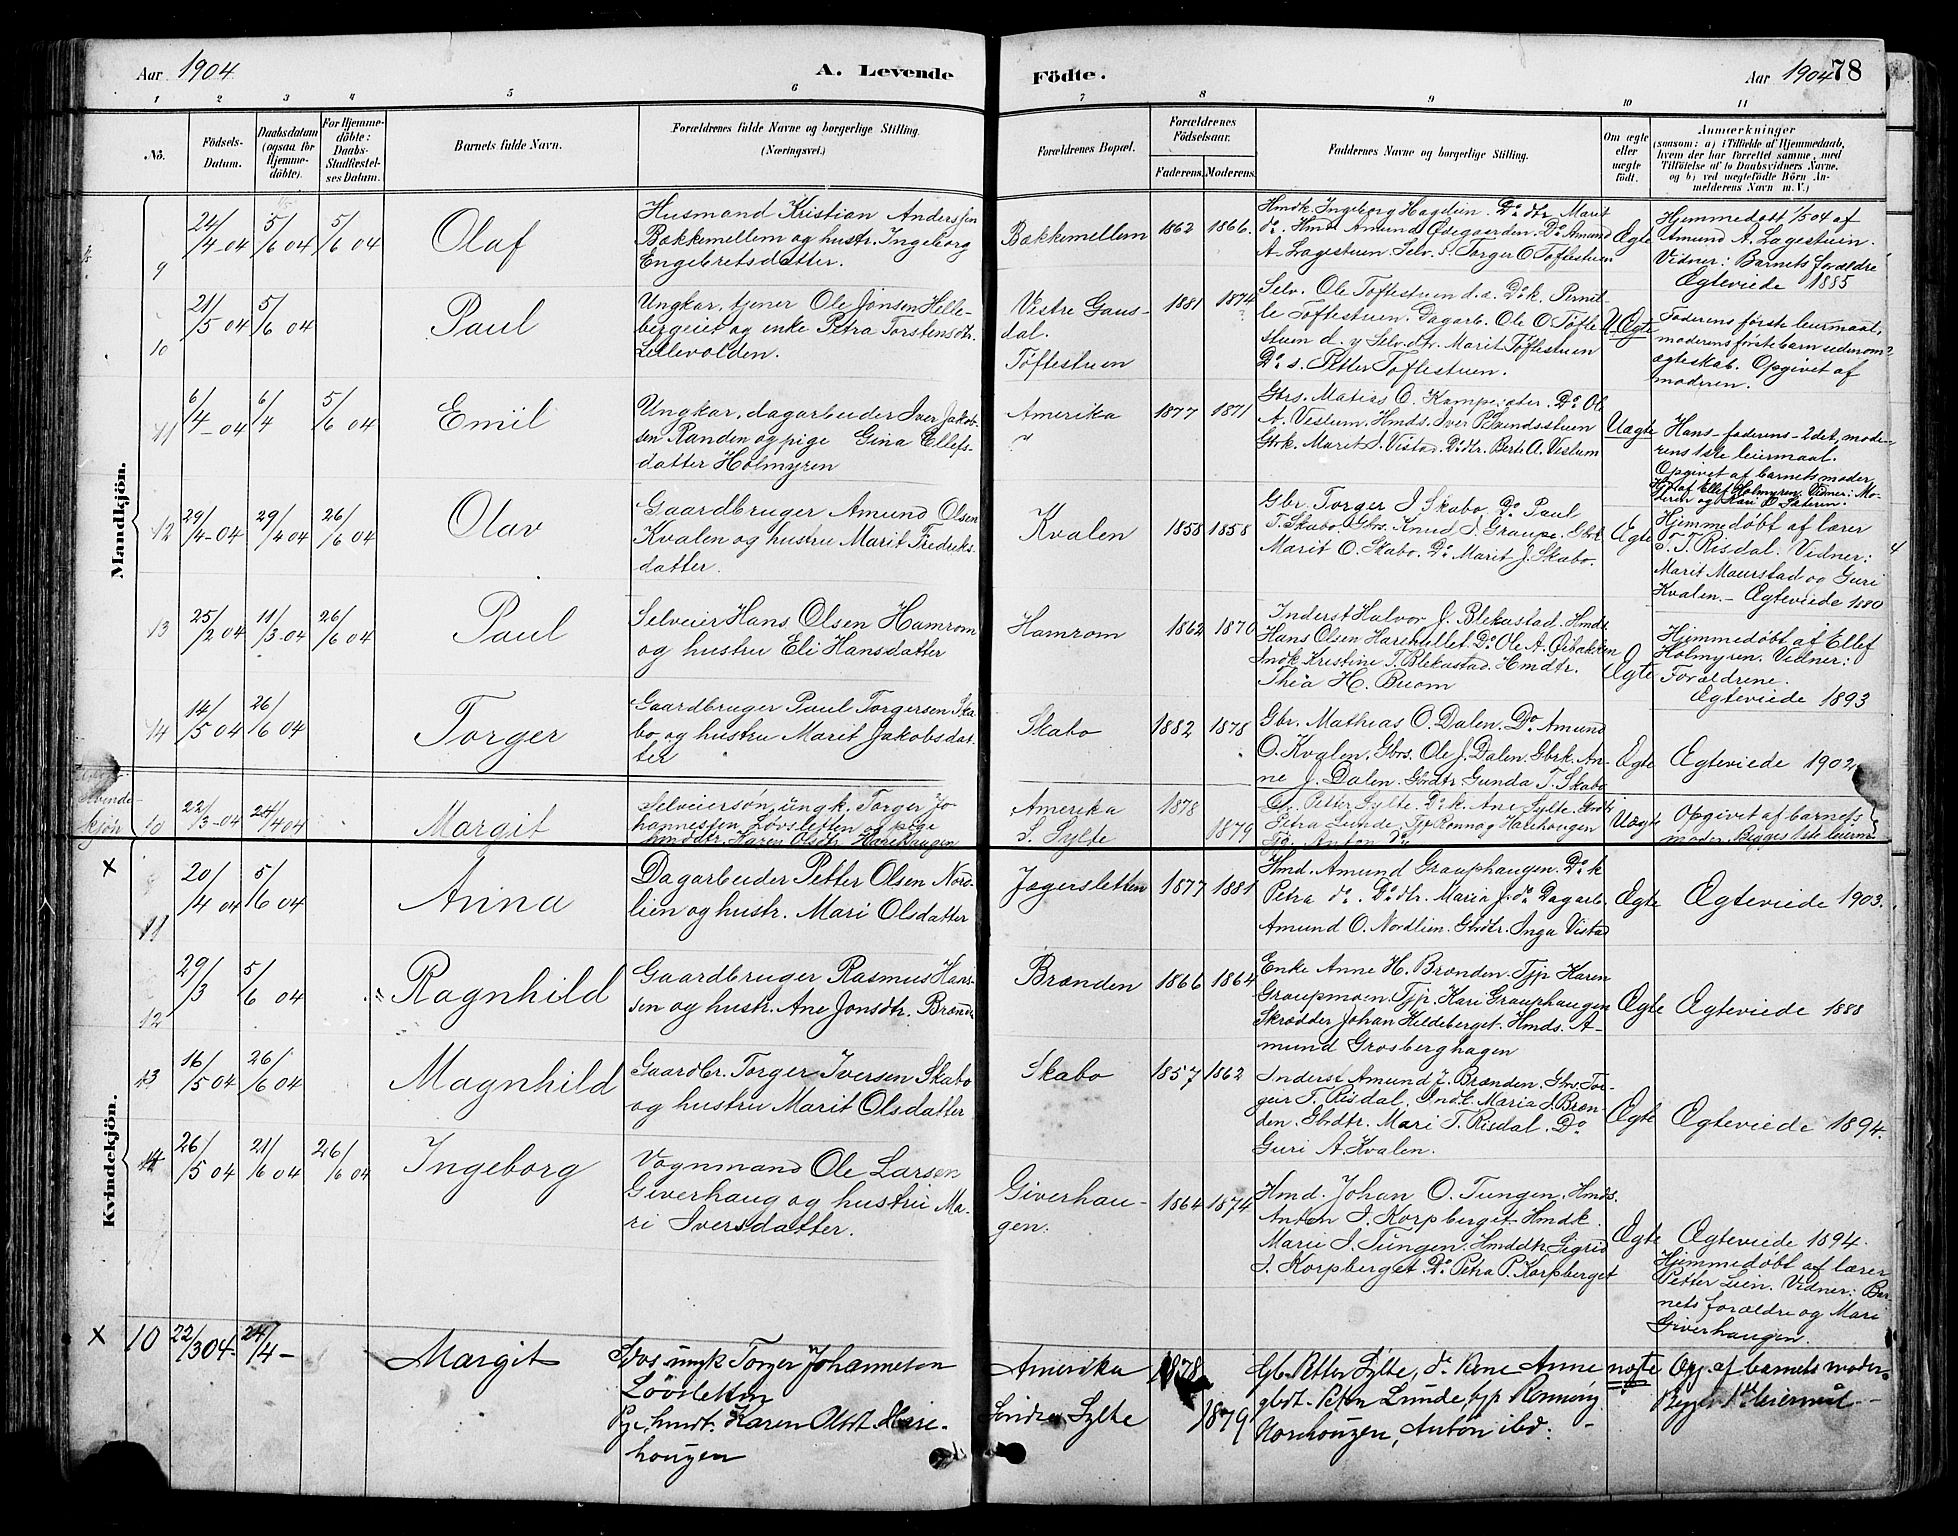 Aar 1904
A. Levende
Födte.
Aar 1904
78
1
2
3
4
5
6
7
8
9
10
11
No.
Födsels-
Datum.
Daabsdatum
(ogsaa for
Hjemme-
döbte).
For Hjemme-
döbte:
Daabs-
Stadfæstel-
ses Datum.
Barnets fulde Navn.
Forældrenes fulde Navne og borgerlige Stilling.
(Næringsvei.)
Forældrenes Bopæl.
Forældrenes
Födselsaar.
Faderens.
Moderens.
Faddernes Navne og borgerlige Stilling.
Om ægte
eller
uægte
födt.
Anmærkninger
(saasom: a) i Tilfælde af Hjemmedaab,
hvem der har forrettet samme, med
Tilföielse af to Daabsvidners Navne.
og b) ved uægtefödte Börn An-
melderens Navn m. V.)
Mandkjön.
9
24/4-04
5/6 04
5/6 04
Olaf
Husmand Kristian Andersen
Bakkemellem og hustr. Ingeborg
Engebretsdatter.
Bakkemellem
1862
1866.
Hmdk. Ingeborg Hageleien. Do dtr Marit
do. Hmd Amund Ødegaarden. Do Amund
A. Lagestuen Selv. s. Torger O Toftestuen
Ægte
Hjemmedøbt 1/5 04 af
Amund A. Lagestuen.
Vidner: Barnets forældre
Ægteviede 1885
10
21/5 04
5/6 04
Paul
Ungkar, tjener Ole Jonsen Helle-
berget og enke Petra Torstensdtr.
Lillevolden.
Vestre Gaus-
dal.
Toftestuen
1881
1874
Selv. Ole Toftestuen d.æ. Do k. Pernil-
le Toftestuen. Dagarb. Ole O Tofte-
stuen d. y Selv. dtr. Marit Toftestuen
Do s. Petter Toftestuen.
U. Ægte
Faderens første leiermaal,
moderens første barn udenom
ægteskab. Opgivet af
moderen.
11
6/4-04
6/4
5/6 04
Emil
Ungkar, dagarbeider Iver Jakob-
sen Randen og pige Gina Ellefs-
datter Holmyren
Amerika
"
1877
1871
Gbrs. Matias O. Kampesæter. Do Ole
A. Vislum. Hmds. Iver Plændsstuen
Gbrk. Marit I. Vistad. Do dtr. Berte A. Vislum
Uægte
Hans - faderens - 2det, mode-
rens 1ste leiermaal.
Opgivet af barnets moder
Hjd af Ellef Holmyren. Vidner: Mo-
deren og Kari O Sæteren.
12
29/4-04
29/4 04
26/6 04
Olav
Gaardbruger Amund Olsen
Kvalen og hustru Marit Fredriks-
datter.
Kvalen
1858
1858
Gbr. Torger J Skabo. Do Paul
T. Skabo. Gbrs. Knud J. Graupe. Gbrk
Marit O. Skabo. Do Marit J. Skabo.
Ægte
Hjemmedøbt af lærer
T. Risdal. Vidner:
Marit Maurstad og Guri
Kvalen. - Ægteviede 1880
4
13
25/2 04
11/3 04
26/6 04
Paul
Selveier Hans Olsen Hamrom
og hustru Eli Hansdatter
Hamrom
1862
1870
Inderst Halvor J. Blekastad. Hmdr
Hans Olsen Harehellet. Do Ole A. Øibakken
Indk. Kristine T. Blekastad. Hmdtr.
Thea H. Buom
Ægte
Hjemmedøbt af Ellef
Holmyren. Vidner:
Forældrene.
Ægteviede 1893
14
14/5 04
26/6 04
Torger
Gaardbruger Paul Torgersen Ska-
bo og hustru Marit Jakobsdat-
ter
Skabo
1882
1878
Gbr. Mathias O. Dalen. Do Amund
O. Kvalen. Gbrs. Ole J. Dalen. Gbrk. An-
ne J. Dalen. Gbrdtr Gunda T. Skabo
Ægte
Ægteviede 1902
Kvinde-
kjøn
10
22/3-04
24/4 04
Margit
Selveiersøn, ungk. Torger Jo-
hannessen Løvsletten og pige
hmddtr. Karen Olsdtr. Harehaugen
Amerika
S. Sylte
1878
1879
G. Petter Sylte. Do k. Ane Sylte. Gbdtr
Petra Lunde, Tjp Rønnaug Harehougen
Tjg. Anton Do
Uægte
Opgivet af barnets
moder. Begges 1ste leierm.
Kvindekjön.
x
11
20/4 04
5/6 04
Anna
Dagarbeider Petter Olsen Nord-
lien og hustr. Mari Olsdatter
Jægersletten
1877
1881
Hmd. Amund Grauphaugen. Do k
Petra do. Do dtr. Maria J. do Dagarb.
Amund O. Nordlien. Gbrdtr. Inga Vistad
Ægte
Ægteviede 1903.
12
29/3
5/6 04
Ragnhild
Gaardbruger Rasmus Hans-
sen og hustr. Ane Jonsdtr. Brænde
Brænden
1866
1864
Enke Anne H. Brænden. Tjp Karen
Graupmoen. Tjp. Kari Grauphaugen
Skrædder Johan Hildeberget. Hmds. A-
mund Grosberghagen
Ægte
Ægteviede 1888
13
16/5 04
26/6 04
Magnhild
Gaardbr. Torger Iversen Skabo
og hustru Marit Olsdatter
Skabo
1857
1862
Inderst Amund J. Brænden. Gbrs. Tor-
geir T. Risdal, Indk. Maria J. Bræn-
den. Gbrdtr. Mari T. Risdal. Do
Guri A. Kvalen.
Ægte
Ægteviede 1894.
14
26/5 04
21/6 04
26/6 04
Ingeborg
Vognmand Ole Larsen
Giverhaug og hustru Ma-
ri Iversdatter.
Giverhau-
gen.
1864
1874
Hmd. Johan O. Tungen. Hmds.
Anton I. Korpberget Hmdk.
Marie J. Tungen. Hmddtr. Sigrid
I. Korpberget. Do Petra P. Korpberget
Ægte
Ægteviede 1894.
Hjemmedøbt af lærer
Petter Lien. Vidner: Bar-
nets forældre og Mari
Giverhaugen.
x
10
22/3 04-
24/4-
Margit
Gbrs ungk Torger Johannesen
Løvsletten
Pge, hmdt. Karen Olsdt. Hare-
hougen
Amerika
Søndre Sylte
1878
1879
Gb. Petter Sylte, do kone Anne
gbdt. Petra Lunde, tjp Rønnaug
Harehougen, Anton ibd: -
uægte
Opg. af barnets moder.
Begges 1ste leiermål -